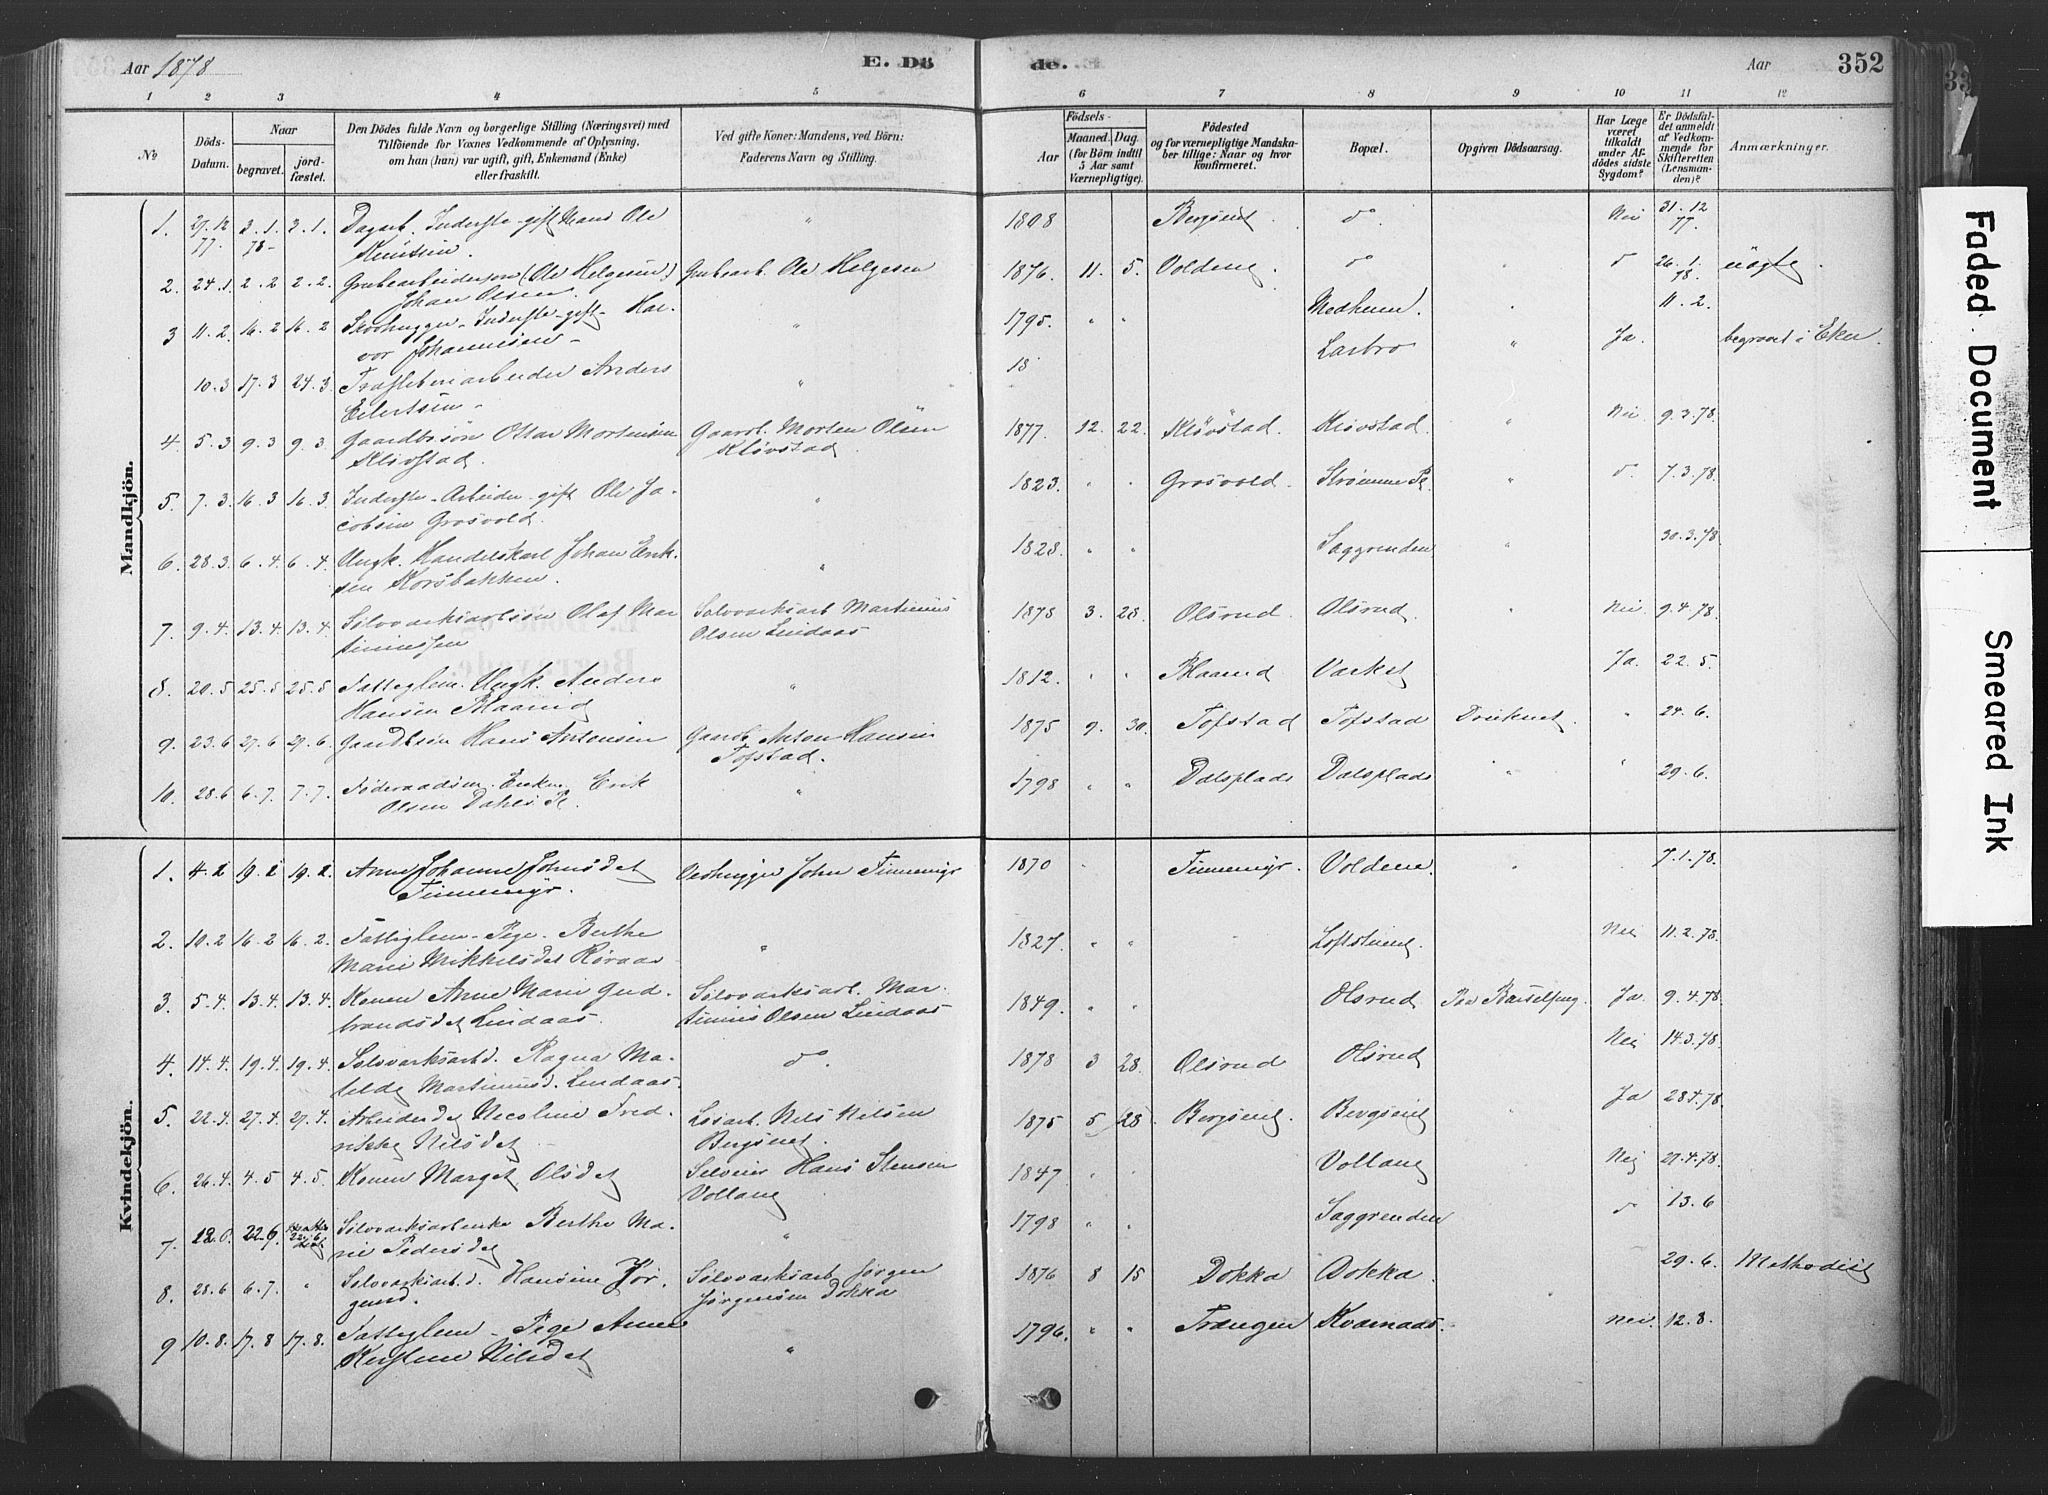 Aar 1878 E. Dö de. Aar 352
1 2 3 4 5 6 7 8 9 10 11 12
No
Döds-Datum.
Naar
begravet.
jord-fæstet.
Den Dödes fulde Navn og borgerlige Stilling (Næringsvei) med
Tilföiende for Voxnes Vedkommende af Oplysning,
om han (hun) var ugift, gift, Enkemand (Enke)
eller fraskilt.
Ved gifte Koner: Mandens, ved Börn:
Faderens Navn og Stilling.
Födsels-
Aar
Maaned. Dag.
(for Börn indtil
5 Aar samt
Værnepligtige).
Födested
og for værnepligtige Mandska-
ber tillige: Naar og hvor
konfirmeret.
Bopæl.
Opgiven Dödsaarsag.
Har Læge
været
tilkaldt
under Af-
dödes sidste
Sygdom?
Er Dödsfal-
det anmeldt
af Vedkom-
mende for
Skifteretten
(Lensman-
den)?
Anmærkninger.
Mandkjön.
1. 27.12 77 3.1. 78 3.1. Dagarb. Inderste gift Mand Ole " 1808 Bergsent do. Nei 31.12 77
Knutsen.
2. 24.1 2.2 2.2. Grubearbeiderson (Ole Helgesen) Grubearb. Ole Helgesen 1876 11. 5. Voldeng. do " d 26.1. 78. uægte.
Johan Olsen.
3 11.2 16.2 16.2 Skovhugger Inderste gift Hal- " 1795. " " Medheim. " 11.2.
vor Johannesen
10.3 17.3 24.3 Træsliberiarbeider Anders " 18 Larbro " Ja. begravet i Eker.
Eilertsen
4 5.3 9.3 9.3 Gaardbrsøn Ottar Mortensen Gaardb. Morten Olsen 1877. 12. 22. Kløvstad. Kløvstad. " Nei 9.3.78.
Kløvstad. Kløvstad
5. 7.3 16.3 16.3 Inderste Arbeider gift Ole Ja- " 1823. " " Grosvold. Strømme Pl. " do 7.3.78.
cobsen Grosvold.
6. 28.3 6.4 6.4 Ungk. Handelskarl Johan Erik- " 1828. " " Saggrenden " 30.3.78
sen Korsbakken.
7. 9.4. 13.4 13.4 Sølvværksarbsøn Olaf Mar Sølvværksarb Martinius 1878 3. 28. Olsrud. Olsrud. " Nei. 9.4.78.
tiniussen Olsen Lindaas
8. 20.5 25.5 25.5 Fattiglem. Ungk. Anders " 1812. " " Blaarud Værket Ja. 22.5.
Hansen Blaarud
9. 23.6 27.6 27.6. Gaardbsøn Hans Antonsen Gaardb. Anton Hansen 1875 9. 30. Tofstad Tofstad Druknet. " 24.6.
Tofstad.
10. 28.6 6.7. 7.7. Føderaadsm. Enkem. Erik " 1798 " " Dalsplads Dalsplads " " 29.6.
Olsen Dahls Pl.
Kvindekjön.
1. 4.2 19.2 19.2 Anne Johanne Johnsdet Vedhugger John Finnemyr 1870 " Finnemyr. Voldene. " 7.1.78.
Finnemyr.
2. 10.2 16.2 16.2. Fattiglem Pige Berthe " 1827. " " Loftstuen. Nei 11.2.78.
Marie Mikkelsdet Røraas
3. 5.4. 13.4. 13.4. Konen Anne Marie Gud- Sølvværksarb. Mar- 1849. " " Olsrud Paa Barselseng. Ja. 9.4.78.
brandsdet Lindaas. tinius Olsen Lindaas
4. 14.4. 19.4. 19.4. Sølvværksarbd. Ragna Ma- do. 1878 3 28. Olsrud Olsrud Nei 14.3.78.
tilde Martiniusd. Lindaas.
5. 22.4. 27.4. 27.4. Arbeiderdet Nicoline Fred- Løsarb. Nils Nilsen 1875 5 28. Bergsent. Bergsent " Ja 28.4.78.
rikke Nilsdet Bergsent.
6. 26.4. 4.5 4.5. Konen Marget Olsdet Selveier Hans Stensen 1847 " Vollang Nei 27.4.78.
Vollang
7. 22.6. 22.6 Sølvværksarbenke Berthe Ma- " 1798 " " Saggrenden d 13.6
rie Pedersdet
8. 28.6 6.7. " Sølvværksarbd. Hansine Jør- Sølvværksarb Jørgen 1876 8 15 Dokka Dokka. 29.6. Methodist
gensd. Jørgensen Dokka
9 10.8. 17.8 17.8. Fattiglem Pige Anne " 1796. " " Trangen Kværnaas. Nei. 12.8.
Kirstine Nilsdet
Faded Document
Smeared Ink